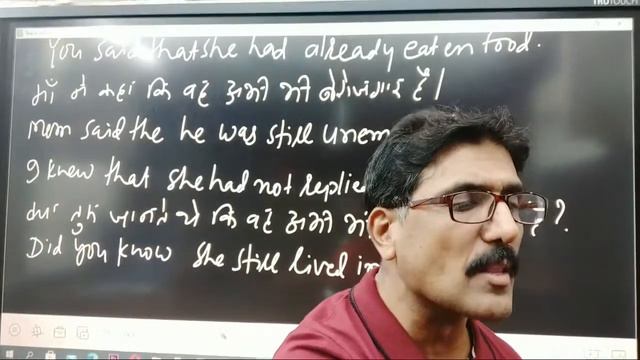 TRUTOUCH
You said that she had already eaten food.
माँ ने कहा कि वह अभी भी बेरोजगार है।
Mom said the he was still unem
I knew that she had not replie
क्या तुम जानते थे कि वह अभी ?
Did you know she still lived in